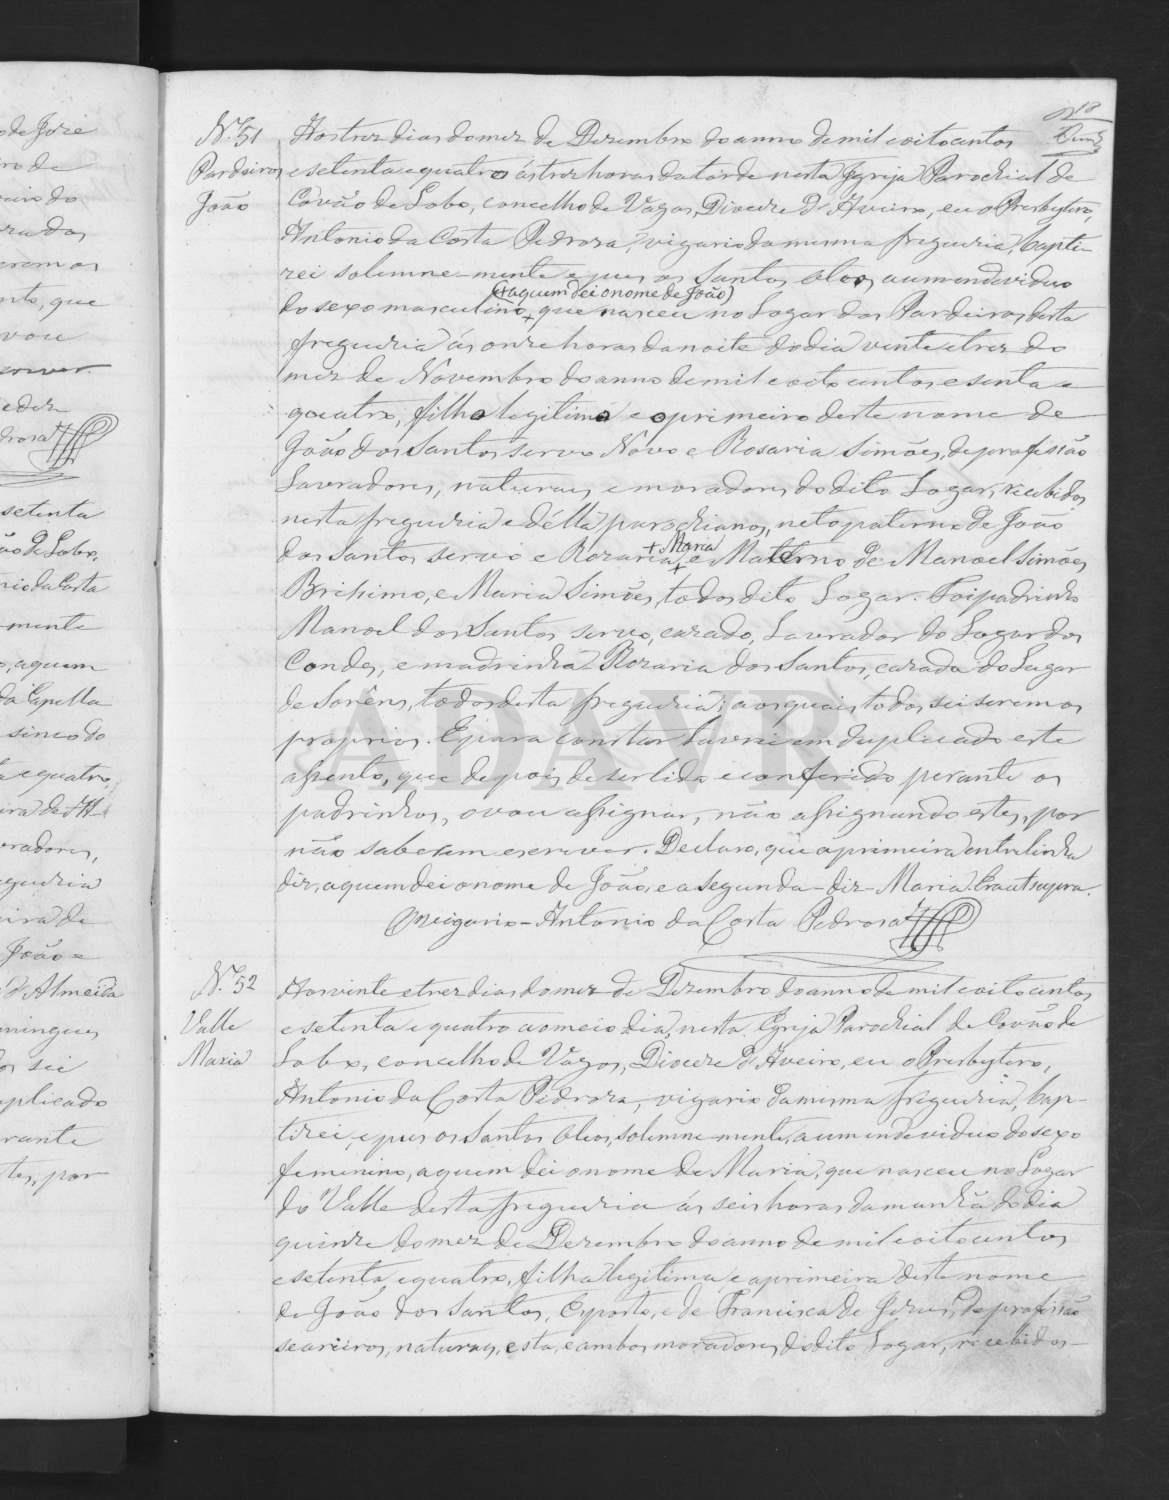 18
N.º 51
Pardeiros
João
Aos trez dias do mez de Dezembro do anno de mil e oitocentos
e setenta e quatro ás trez horas da tarde nesta Igreja Parochial de
Covão de Lobo, concelho de Vagos, Dioceze d'Aveiro, eu o Presbytero,
Antonio da Costa Pedroza, vigario da mesma freguezia, bapti-
zei solemne-mente e puz os Santos oleos a um individuo
(+ a quem dei o nome de João)
do sexo masculino, + que nasceu no Logar dos Pardeiros desta
freguezia ás onze horas da noite do dia vinte e trez do
mez de Novembro do anno de mil e oito centos e setenta e
quatro, filho legitimo e o primeiro deste nome de
João dos Santos servo Novo e Rosaria Simões, de profissão
Lavradores, naturaes e moradores do dito Logar, recebidos
nesta freguezia e délla parochianos, neto paterno de João
+ Maria
dos Santos servo e Rozaria + e Materno de Manoel Simões
Brisimo, e Maria Simões, todos dito Logar. Foi padrinho
Manoel dos Santos servo, cazado, Lavrador do Logar dos
Condes, e madrinha Rozaria dos Santos, cazada do Lugar
de Sorêns, todos desta freguezia; aos quaes todos sei serem os
proprios. E para constar lavrei em duplicado este
assento, que depois de ser lido e conferido perante os
padrinhos, o vou assignar, não assignando estes, por
não saberem escrever. Declaro, que a primeira entrelinha
diz, a quem dei o nome de João, e a segunda - diz - Maria. Era ut supra.
O vigario - Antonio da Costa Pedrosa
N.º 52
Valle
Maria
Aos vinte e trez dias do mez de Dezembro do anno de mil e oito centos
e setenta e quatro ao meio dia, nesta Igreja Parochial de Covão de
Lobo, concelho de Vagos, Dioceze d'Aveiro, eu o Presbytero,
Antonio da Costa Pedroza, vigario da mesma freguezia, bap-
tizei, e puz os Santos oleos, solemne-mente, a um individuo do sexo
feminino, a quem dei o nome de Maria, que nasceu no Logar
do Valle desta freguezia ás seis horas da manhã do dia
quinze do mez de Dezembro do anno de mil e oito centos
e setenta e quatro, filha legitima e a primeira deste nome
de João dos Santos, Exposto, e de Francisca de Jezus, de profissão
seareiros, naturaes, esta, e ambos moradores, do dito Logar, recebidos -
ADAVR